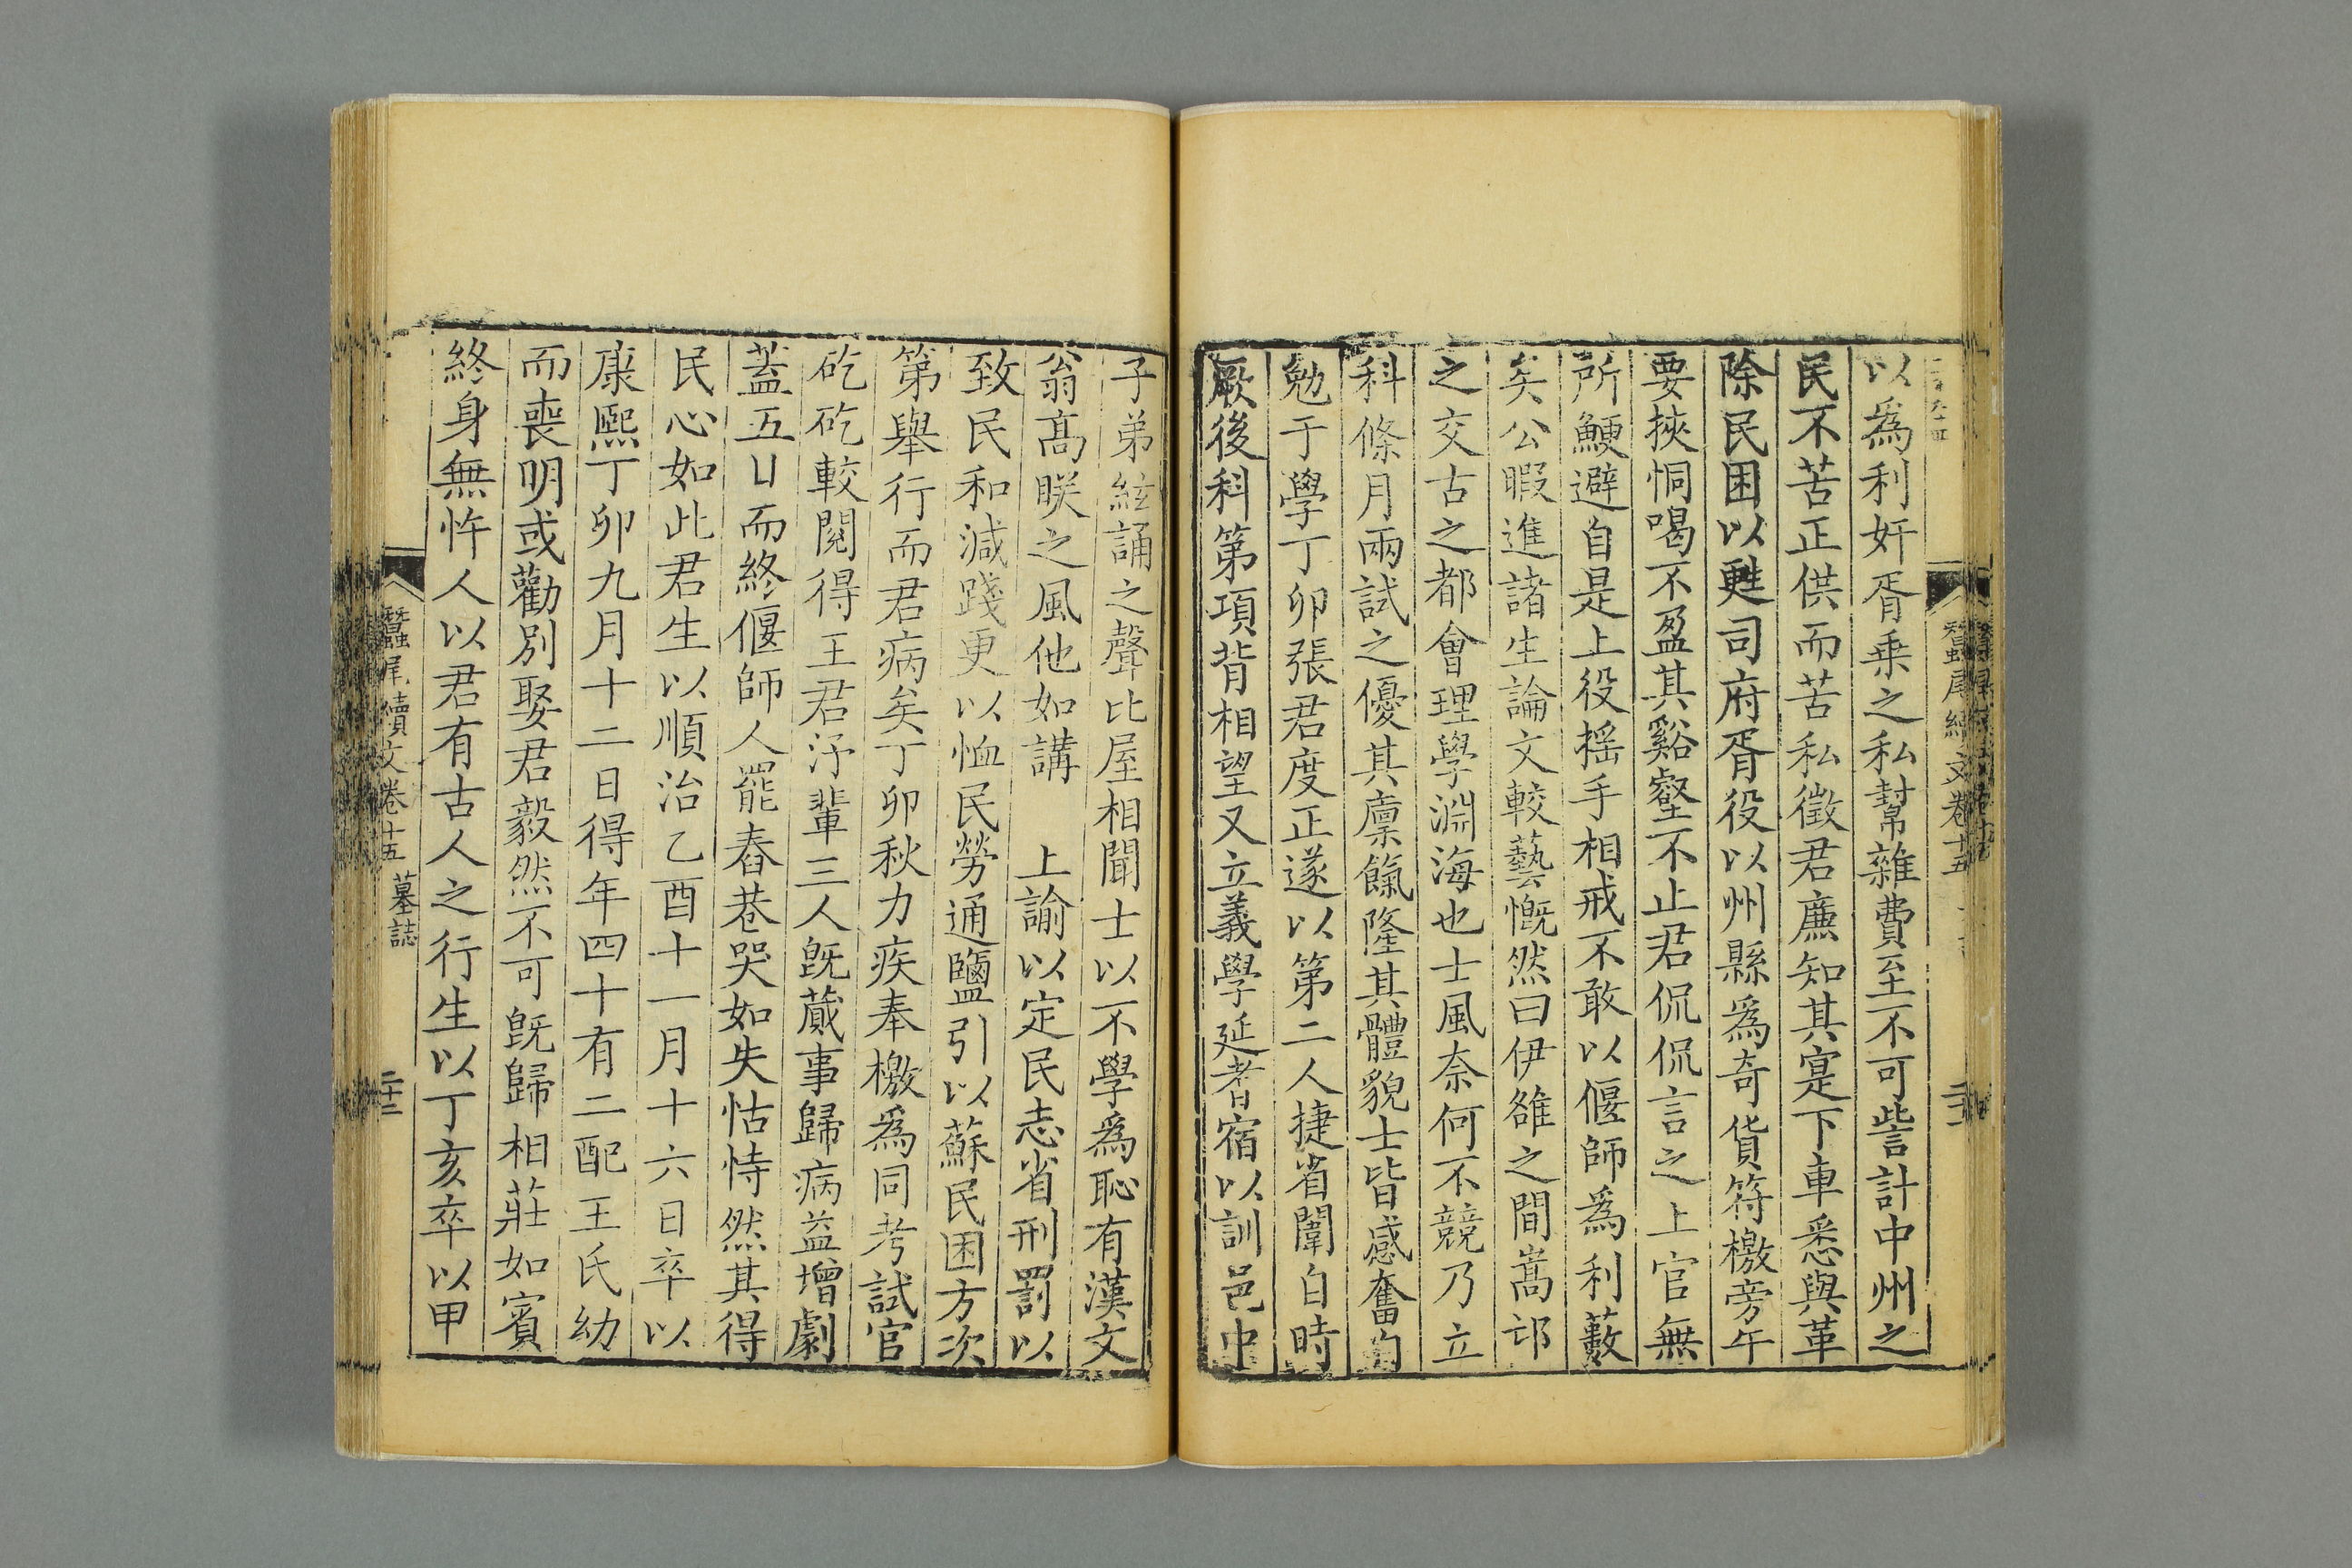 以爲利奸胥乗之私幇雜費至不可訾計中州之
民不苦正供而苦私徵君廉知其寔下車悉與革
除民困以甦司府胥役以州縣爲奇貨符檄旁午
要挾恫喝不盈其谿壑不止君侃侃言之上官無
所鯁避自是上役揺手相戒不敢以偃師爲利藪
矣公暇進諸生論文較藝慨然曰伊雒之間嵩邙
之交古之都會理學淵海也士風奈何不競乃立
科條月兩試之優其廩餼隆其體貌士皆感奮
勉于學丁卯張君度正遂以第二人捷省闈自時
厥後科第項背相望又立義學延耆宿以訓邑中
子弟絃誦之聲比屋相聞士以不學爲恥有漢文
翁髙朕之風他如講 上諭以定民志省刑罰以
致民和減踐更以恤民勞通鹽引以蘇民困方次
第舉行而君病矣丁卯秋力疾奉檄爲同考試官
矻矻較閱得王君汿輩三人旣蕆事歸病益增劇
蓋五日而終偃師人罷舂巷哭如失怙恃然其得
民心如此君生以順治乙酉十一月十六日卒以
康熙丁卯九月十二日得年四十有二配王氏幼
而喪明或勸別娶君毅然不可旣歸相莊如賓
終身無忤人以君有古人之行生以丁亥卒以甲
蠶尾續文卷十五 墓誌 二十二